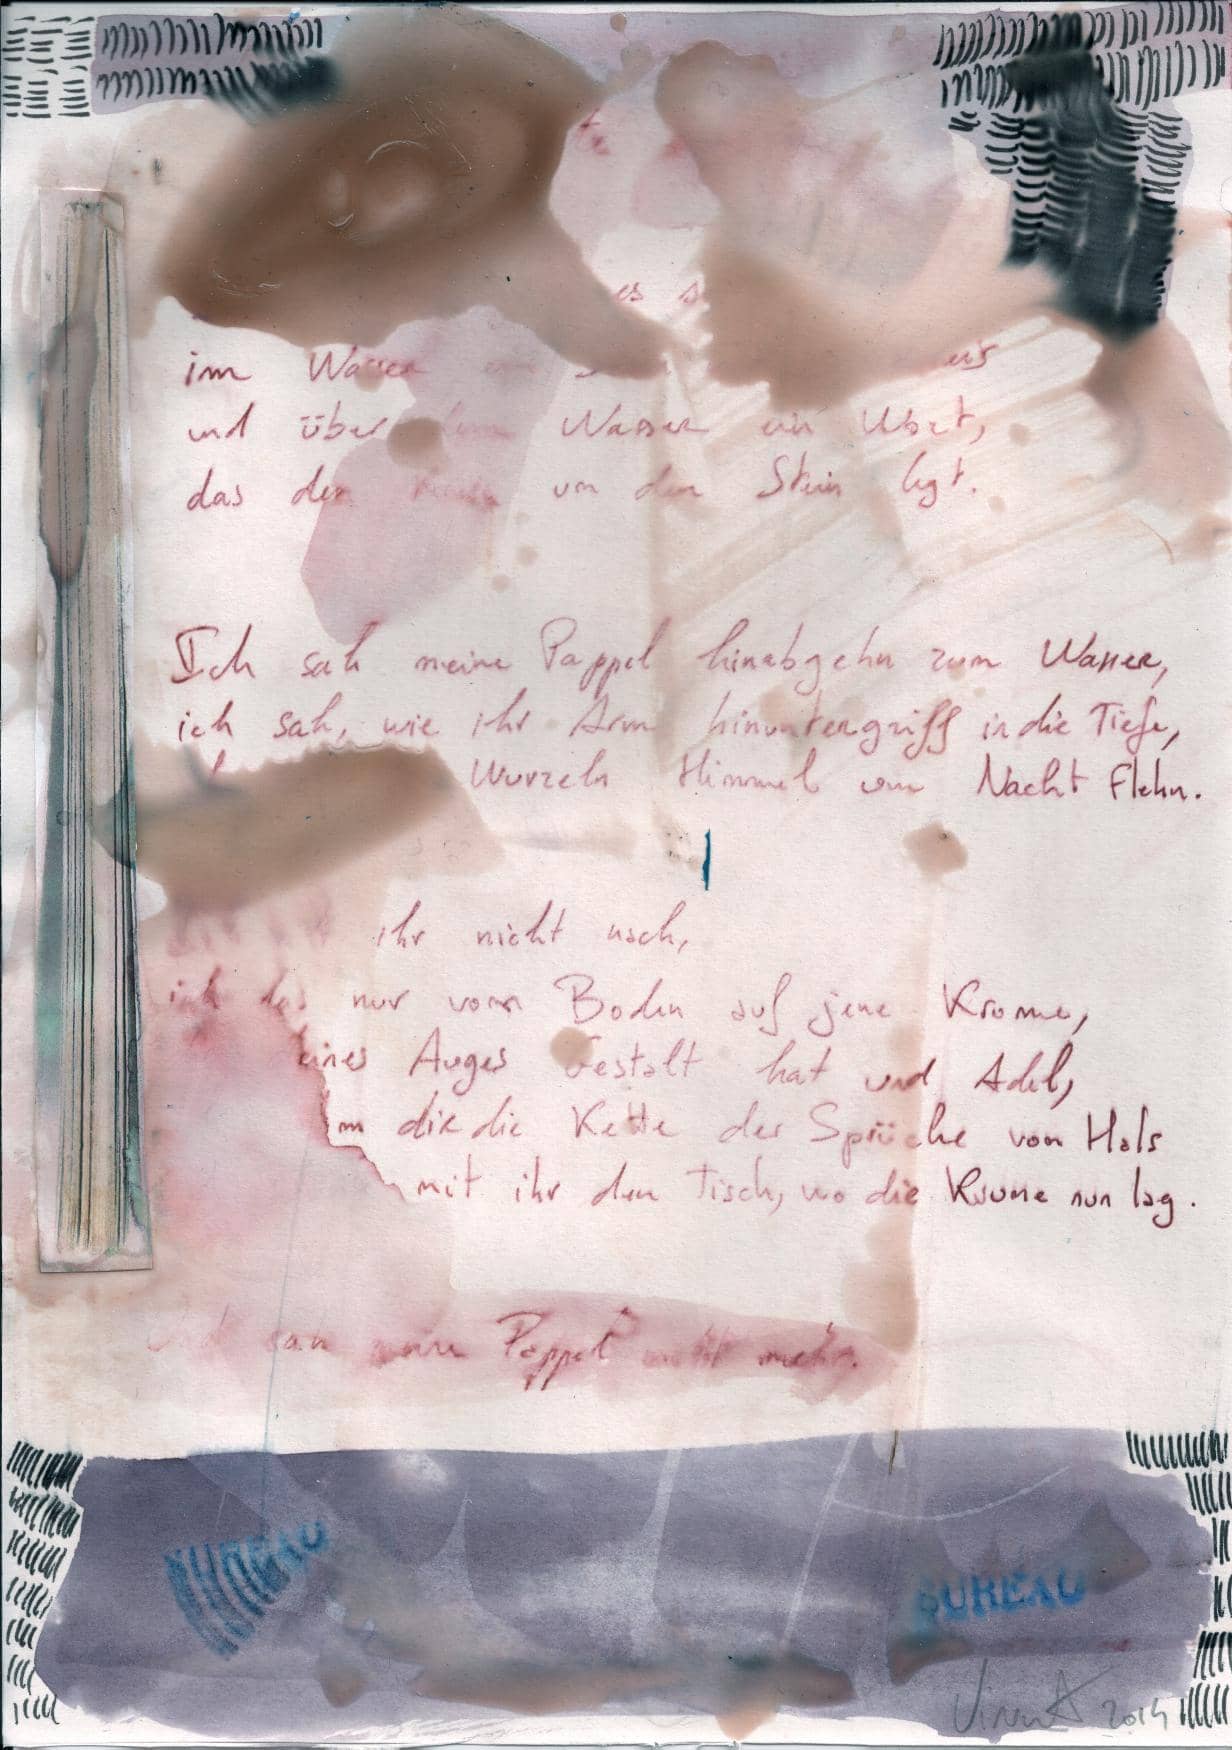 es s
im Wasser
und über dem Wasser ein Wort,
das den Kreis um den Stein legt.
Ich sah meine Pappel hinabgehn zum Wasser,
ich sah, wie ihr Arm hinuntergriff in die Tiefe,
Wurzeln Himmel um Nacht flehn.
ihr nicht nach,
ich las nur vom Boden auf jene Krume,
eines Auges Gestalt hat und Adel,
dir die Kette der Sprüche vom Hals
mit ihr den Tisch, wo die Krume nun lag.
Und sah meine Pappel nicht mehr.
BUREAU
BUREAU
2014